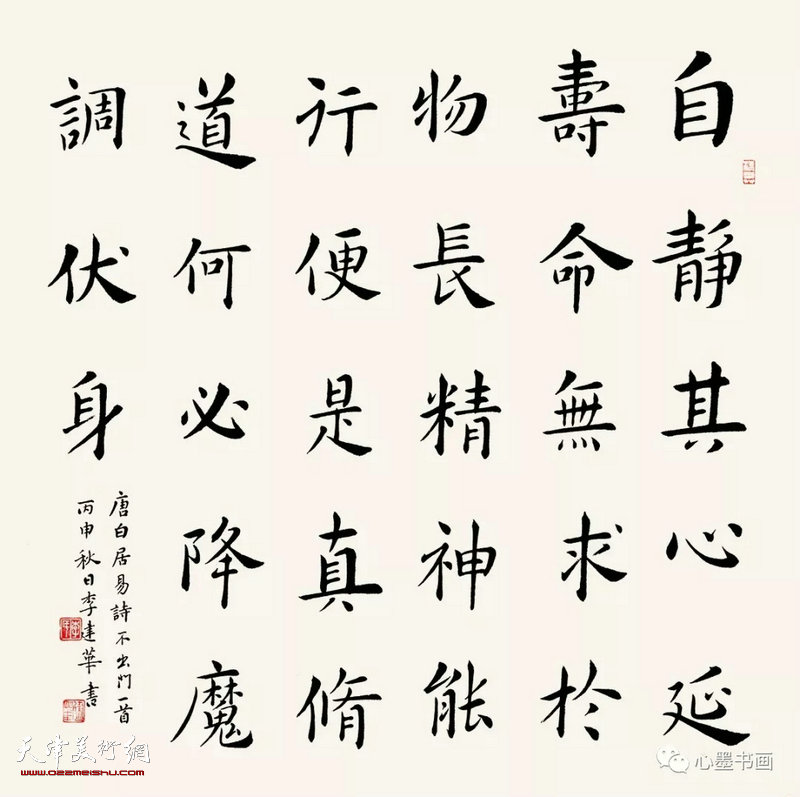 自靜其心延
壽命無求於
物長精神能
行便是真脩
道何必降魔
調伏身
唐白居易詩不出門一首
丙申秋日李建華書
天津美術網
www.022meishu.com
心墨书画